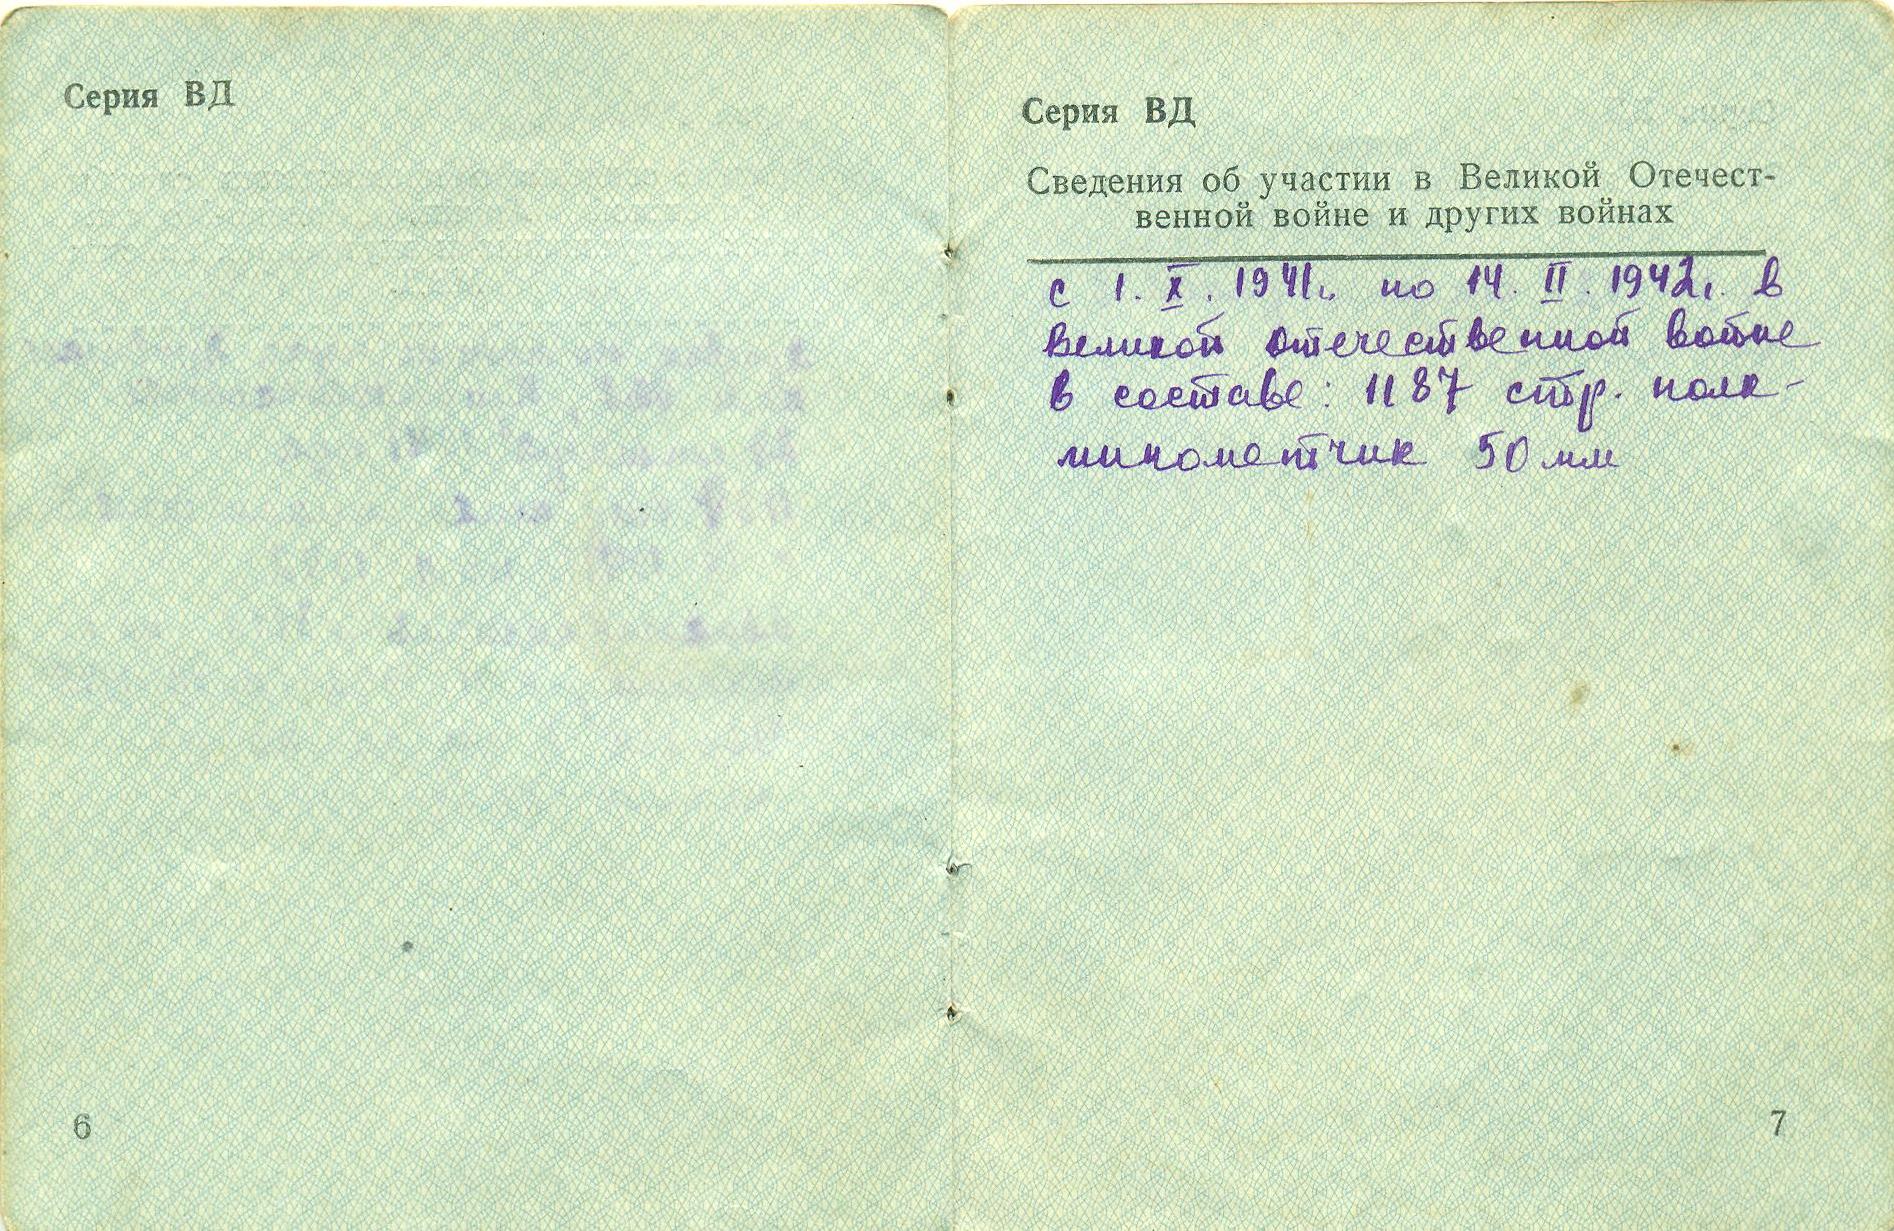 Серия ВД
6
Серия ВД
Сведения об участии в Великой Отечест-
венной войне и других войнах
с 1. X. 1941г. по 14. II. 1942г. в
Великой отечественной войне
в составе: 1187 стр. полк-
минометчик 50 мм
7